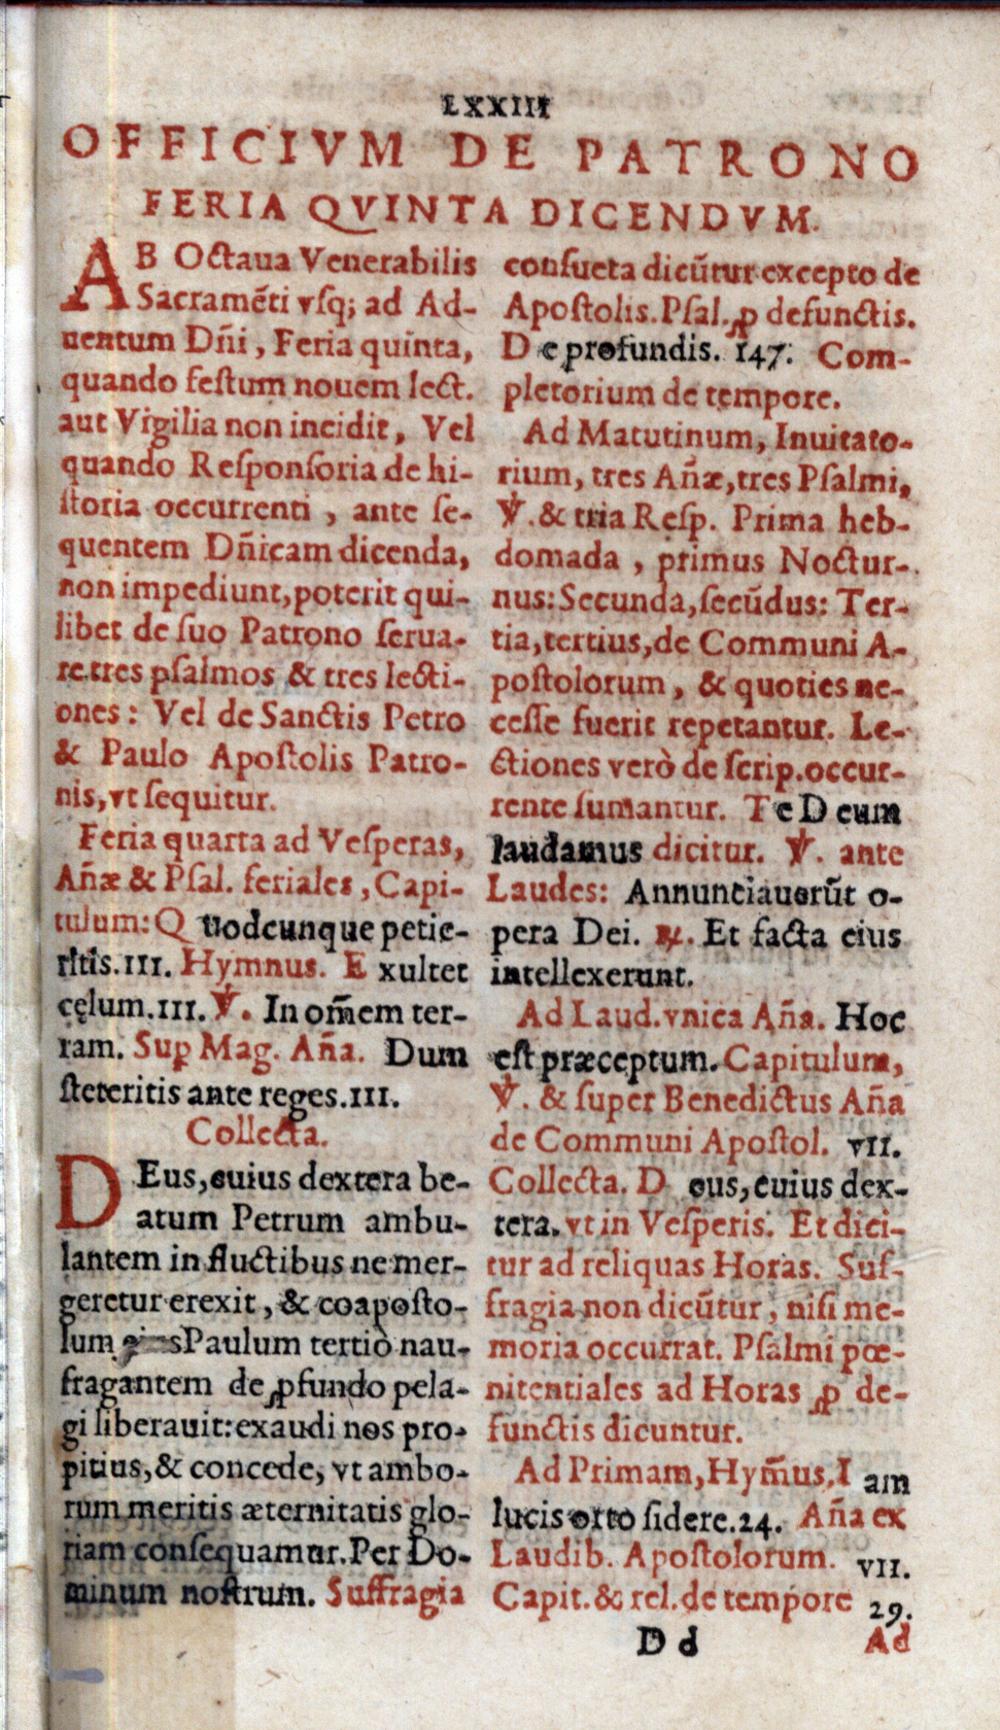 LXXIII
OFFICIVM DE PATRONO
FERIA QVINTA DICENDVM.
AB Octaua Venerabilis
Sacramẽti vſq; ad Ad-
uentum Dñi, Feria quinta,
quando feſtum nouem lect.
aut Vigilia non incidit, Vel
quando Reſponſoria de hi-
ſtoria occurrenti, ante ſe-
quentem Dñicam dicenda,
non impediunt, poterit qui-
libet de ſuo Patrono ſerua-
re tres pſalmos & tres lecti-
ones: Vel de Sanctis Petro
& Paulo Apoſtolis Patro-
nis, vt ſequitur.
Feria quarta ad Veſperas,
Añæ & Pſal. feriales, Capi-
tulum: Quodcunque petie-
ritis.III. Hymnus. Exultet
cęlum.III. ℣. In om̃em ter-
ram. Suꝑ Mag. Aña. Dum
ſteteritis ante reges.III.
Collecta.
DEus, cuius dextera be-
atum Petrum ambu-
lantem in fluctibus ne mer-
geretur erexit, & coapoſto-
lum Paulum tertiò nau-
fragantem de ꝓfundo pela-
gi liberauit: exaudi nos pro-
pitius, & concede, vt ambo-
rum meritis æternitatis glo-
riam conſequamur. Per Do-
minum noſtrum. Suffragia
conſueta dicũtur excepto de
Apoſtolis. Pſal. ꝓ defunctis.
De profundis. 147. Com-
pletorium de tempore.
Ad Matutinum, Inuitato-
rium, tres Añæ, tres Pſalmi,
℣. & tria Reſp. Prima heb-
domada, primus Noctur-
nus: Secunda, ſecũdus: Ter-
tia, tertius, de Communi A-
poſtolorum, & quoties ne-
ceſſe fuerit repetantur. Le-
ctiones verò de ſcrip. occur-
rente ſumantur. Te Deum
laudamus dicitur. ℣. ante
Laudes: Annunciauerũt o-
pera Dei. ℟. Et facta eius
intellexerunt.
Ad Laud. vnica Aña. Hoc
eſt præceptum. Capitulum,
℣. & ſuper Benedictus Aña
de Communi Apoſtol. VII.
Collecta. Deus, cuius dex-
tera. vt in Veſperis. Et dici-
tur ad reliquas Horas. Suf-
fragia non dicũtur, niſi me-
moria occurrat. Pſalmi pœ-
nitentiales ad Horas ꝓ de-
functis dicuntur.
Ad Primam, Hym̃us, Iam
lucis orto ſidere.24. Aña ex
Laudib. Apoſtolorum. VII.
Capit. & rel. de tempore 29.
D d Ad